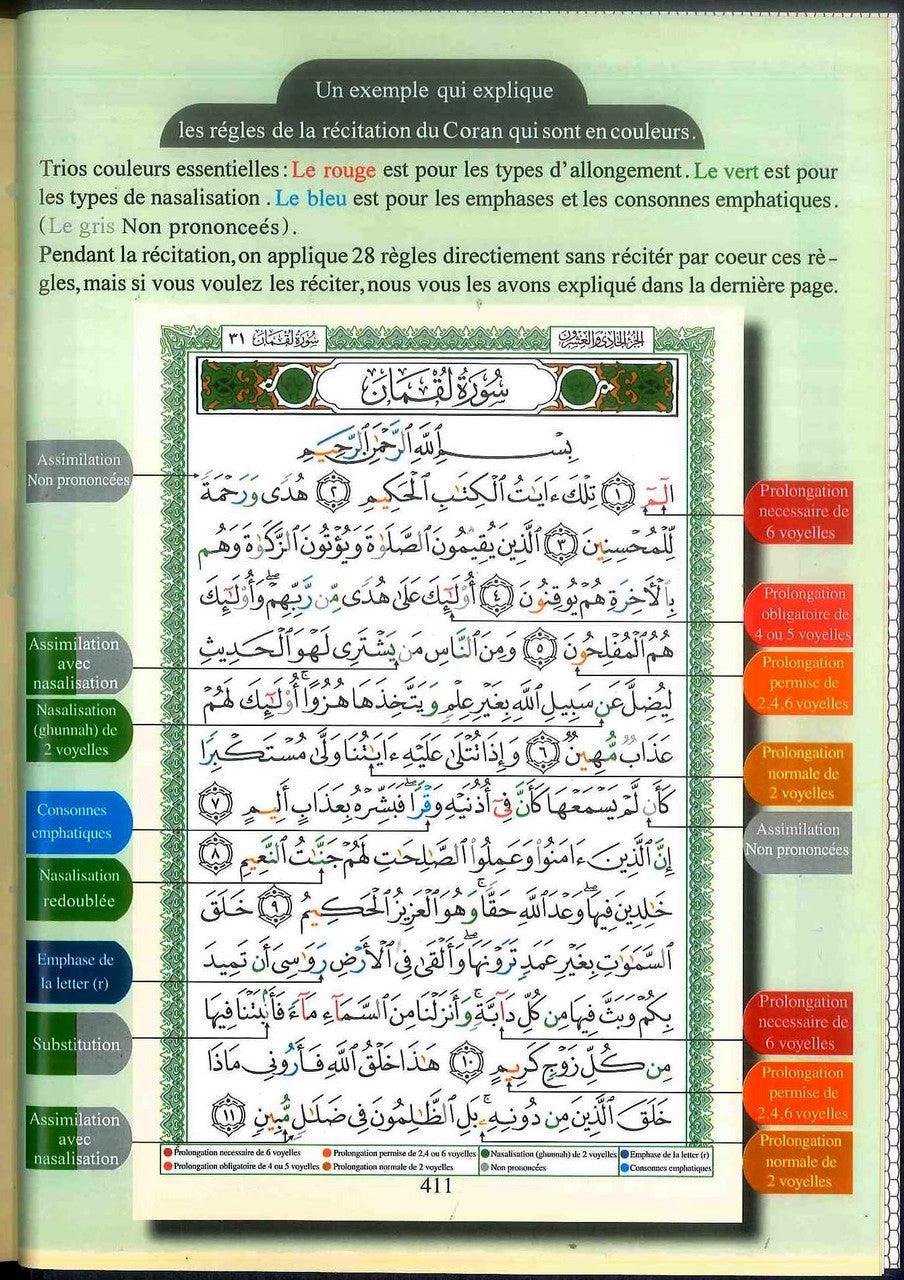 Un exemple qui explique
les régles de la récitation du Coran qui sont en couleurs.
Trios couleurs essentielles : Le rouge est pour les types d'allongement. Le vert est pour
les types de nasalisation . Le bleu est pour les emphases et les consonnes emphatiques.
(Le gris Non prononceés).
Pendant la récitation, on applique 28 règles directiement sans récitér par coeur ces rè-
gles, mais si vous voulez les réciter, nous vous les avons expliqué dans la dernière page.
الجزء الحادي والعشرون
سورة لقمان ٣١
سُورَةُ لُقْمَان
بِسْمِ ٱللَّهِ ٱلرَّحْمَٰنِ ٱلرَّحِيمِ
الٓمٓ ١ تِلْكَ ءَايَٰتُ ٱلْكِتَٰبِ ٱلْحَكِيمِ ٢ هُدًى وَرَحْمَةً
لِّلْمُحْسِنِينَ ٣ ٱلَّذِينَ يُقِيمُونَ ٱلصَّلَوٰةَ وَيُؤْتُونَ ٱلزَّكَوٰةَ وَهُم
بِٱلْءَاخِرَةِ هُمْ يُوقِنُونَ ٤ أُو۟لَٰٓئِكَ عَلَىٰ هُدًى مِّن رَّبِّهِمْ ۖ وَأُو۟لَٰٓئِكَ
هُمُ ٱلْمُفْلِحُونَ ٥ وَمِنَ ٱلنَّاسِ مَن يَشْتَرِى لَهْوَ ٱلْحَدِيثِ
لِيُضِلَّ عَن سَبِيلِ ٱللَّهِ بِغَيْرِ عِلْمٍ وَيَتَّخِذَهَا هُزُوًا ۚ أُو۟لَٰٓئِكَ لَهُمْ
عَذَابٌ مُّهِينٌ ٦ وَإِذَا تُتْلَىٰ عَلَيْهِ ءَايَٰتُنَا وَلَّىٰ مُسْتَكْبِرًا
كَأَن لَّمْ يَسْمَعْهَا كَأَنَّ فِىٓ أُذُنَيْهِ وَقْرًا ۖ فَبَشِّرْهُ بِعَذَابٍ أَلِيمٍ ٧
إِنَّ ٱلَّذِينَ ءَامَنُوا۟ وَعَمِلُوا۟ ٱلصَّٰلِحَٰتِ لَهُمْ جَنَّٰتُ ٱلنَّعِيمِ ٨
خَٰلِدِينَ فِيهَا ۖ وَعْدَ ٱللَّهِ حَقًّا ۚ وَهُوَ ٱلْعَزِيزُ ٱلْحَكِيمُ ٩ خَلَقَ
ٱلسَّمَٰوَٰتِ بِغَيْرِ عَمَدٍ تَرَوْنَهَا ۖ وَأَلْقَىٰ فِى ٱلْأَرْضِ رَوَٰسِىَ أَن تَمِيدَ
بِكُمْ وَبَثَّ فِيهَا مِن كُلِّ دَآبَّةٍ ۚ وَأَنزَلْنَا مِنَ ٱلسَّمَآءِ مَآءً فَأَنۢبَتْنَا فِيهَا
مِن كُلِّ زَوْجٍ كَرِيمٍ ١٠ هَٰذَا خَلْقُ ٱللَّهِ فَأَرُونِى مَاذَا
خَلَقَ ٱلَّذِينَ مِن دُونِهِۦ ۚ بَلِ ٱلظَّٰلِمُونَ فِى ضَلَٰلٍ مُّبِينٍ ١١
Assimilation
Non prononcées
Assimilation
avec
nasalisation
Nasalisation
(ghunnah) de
2 voyelles
Consonnes
emphatiques
Nasalisation
redoublée
Emphase de
la letter (r)
Substitution
Assimilation
avec
nasalisation
Prolongation
necessaire de
6 voyelles
Prolongation
obligatoire de
4 ou 5 voyelles
Prolongation
permise de
2,4,6 voyelles
Prolongation
normale de
2 voyelles
Assimilation
Non prononcées
Prolongation
necessaire de
6 voyelles
Prolongation
permise de
2,4,6 voyelles
Prolongation
normale de
2 voyelles
Prolongation necessaire de 6 voyelles Prolongation permise de 2,4 ou 6 voyelles Nasalisation (ghunnah) de 2 voyelles Emphase de la letter (r)
Prolongation obligatoire de 4 ou 5 voyelles Prolongation normale de 2 voyelles Non prononcées Consonnes emphatiques
411